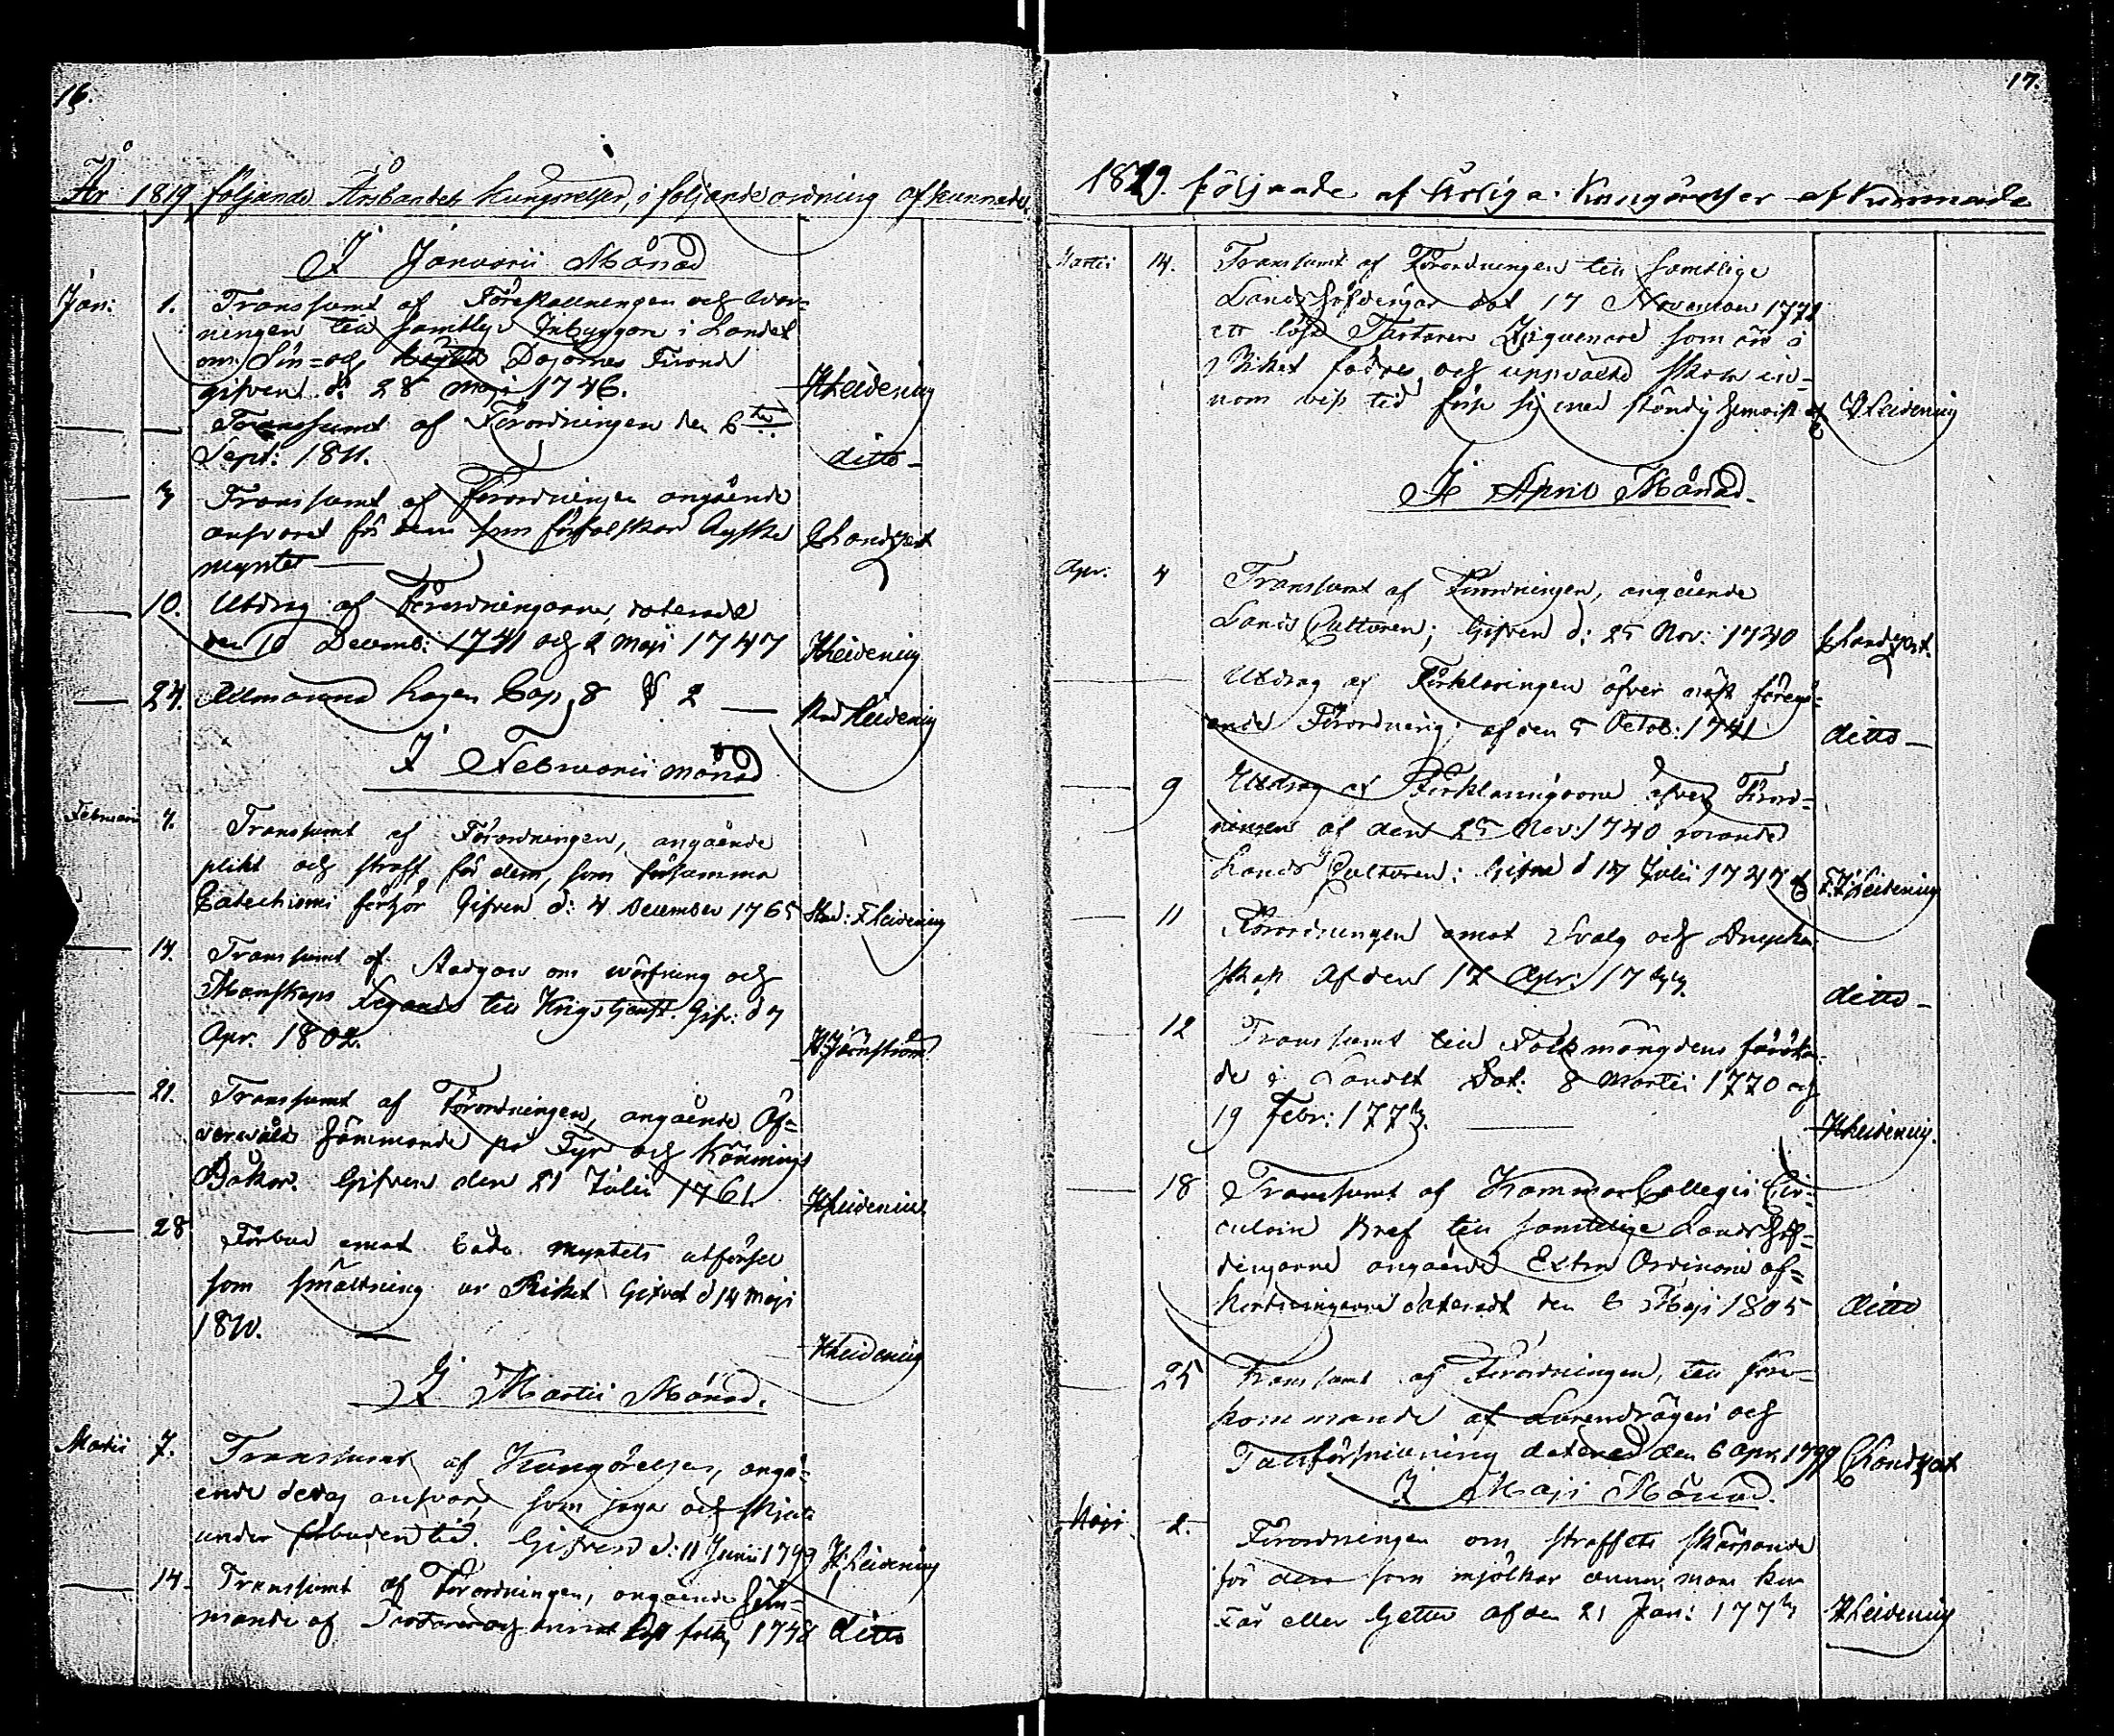 16.
År 1819 följande Årsbandets Kungörelser, i följande ordning afkunnade,
I Januarii Månad
Jan: 1. Transsumt af Föreställningen och War=
ningen till samtlige Inbyggare i Landet
om Sön= och Dagarnes Firand
gifven d: 28 Maji 1746. H Leidenius
Transsumt af Förordningen den 6te
Sept: 1811. ditto
3 Transsumt af Förordningen angående
answaret för dem som förfalskar Ryska
myntet
10. Utdrag af Förordningarne, daterade
den 10 Decemb: 1741 och 2 Maji 1747 H Leidenius
24. Allmänna Lagen Cap, 8 § 2 Leidenius
I Februarii månad
Februarii 7. Transsumt af Förordningen, angående
plikt och straff, för dem, som försumma
Catechismi förhör Gifven d: 4 December 1765 Leidenius
14. Transsumt af Stadgan om värfning och
Manskaps Legande till Krigstjenst. Gif: d 7
Apr. 1802.
21. Transsumt af Förordningen, angående Åf=
verwålds hämmande på Fyr och Känning
Båkar. Gifven den 21 Julii 1761. H Leidenius
28 Förbud emot både myntets utförsel
som smältning ur Riket Gifvet d 14 Maji
1810. H Leidenius
I Martii Månad.
Martii 7. Transsumt af Kungörelsen, angå=
ende deras answar, som jaga och skjuta
under förbuden tid. Gifven d: 11 Junii 1793 H: Leidenius
14. Transsumt af Förordningen, angående häm=
mande af Tartarer och annat löst folk, 1748 ditto
17.
1819. följande af Årliga Kungörelser afkunnade
Martii 14. Transsumt af Förordningen till samtlige
Landshöfdingar dat 17 November 1771
att löse Tartaren Ziguenare som äro i
Riket födde och uppväxte skola in=
nom viss tid förse sig med ständig hemvist H Leidenius
I April Månad.
Apr. 4 Transsumt af Förordningen, angående
Lands Culturen; Gifven d: 25 Nov: 1740
Utdrag af Förklaringen öfver näst föregå=
ende Förordning; af den 5 Octob: 1741 ditto
9 Utdrag af Förklaringarne öfver Förord=
ningen af den 25 Nov: 1740 rörande
Lands Culturen: Gifne d 17 Julii 1747 Leidenius
11 Förordningen emot Svalg och Dryckenskap
Af den 17 Apr: 1733. ditto
12 Transsumt till Folkmängdens förökan=
de i Landet Dat: 8 Martii 1770 och
19 Febr: 1773. H Leidenius.
18 Transsumt af Kammar Collegii Cir=
culair Bref till samtelige Landshöf=
dingarne angående Extra Ordinarie af=
kortningarne daterat den 6 Maji 1805 ditto
25 Transsumt af Förordningen, till före=
kommande af Lurendrägeri och
Tullförsnillning daterad den 6 Apr, 1799
I Maji Månad.
Maji 2. Förordningen om straffets skärpande
för dem som mjölkar annan mans ko
Får eller Getter af den 21 Jan: 1773 H Leidenius